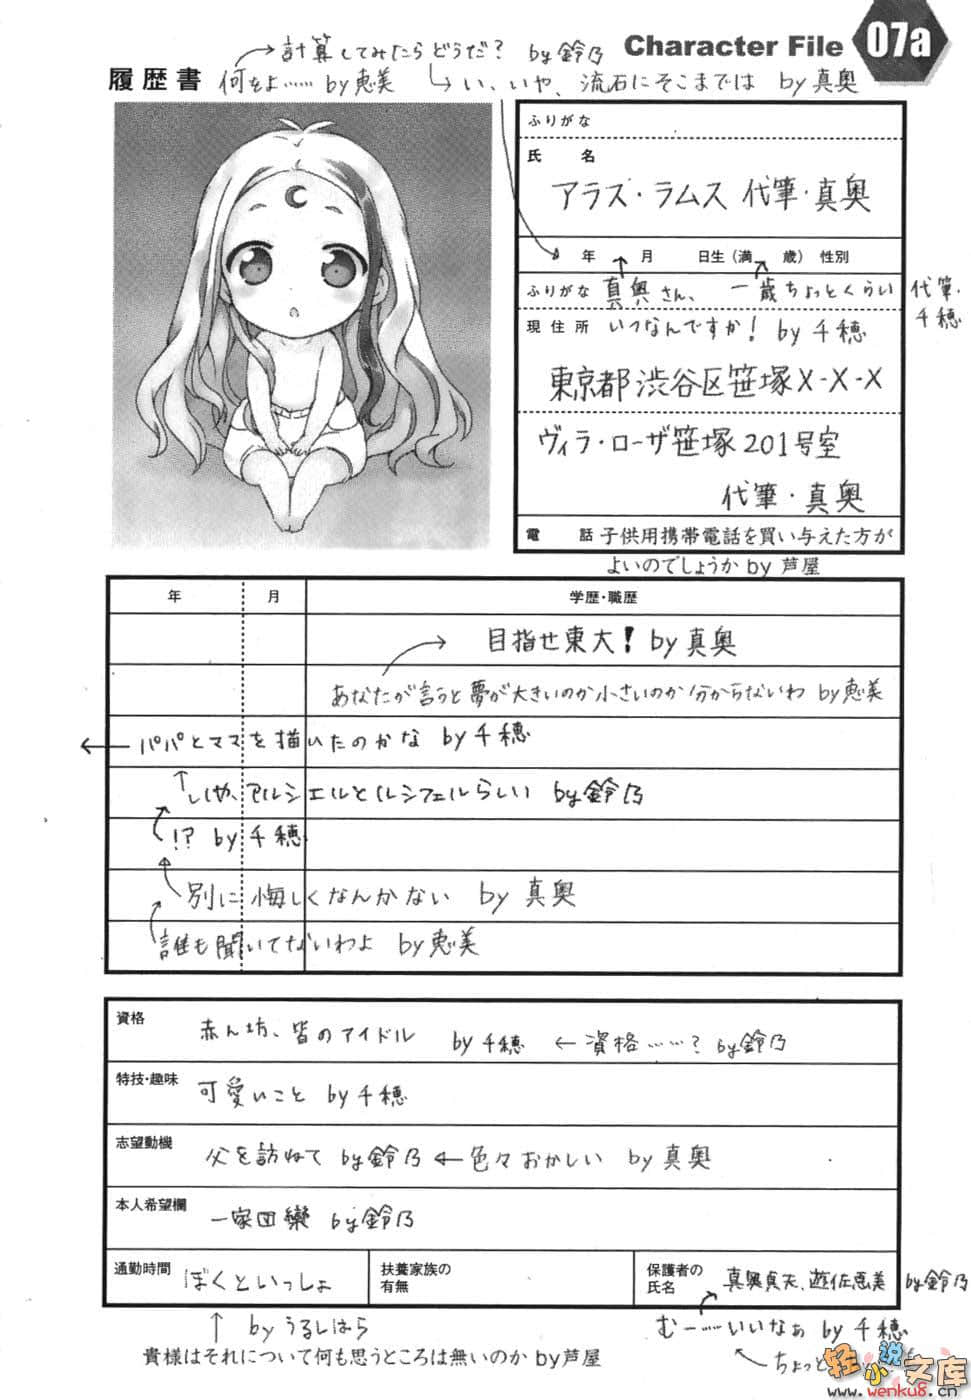 →計算してみたらどうだ? by鈴乃
Character File
07a
履歴書
何をよ…… by恵美
い、いや、流石にそこまでは by真奥
ふりがな
氏 名
アラス・ラムス 代筆・真奥
年 月 日生(満 歳) 性別
ふりがな
真奥さん、
一歳ちょっとくらい 代筆・千穂
現住所
いつなんですか! by千穂
東京都渋谷区笹塚X-X-X
ヴィラ・ローザ笹塚201号室
代筆・真奥
電 話
子供用携帯電話を買い与えた方が
よいのでしょうか by 芦屋
年 月 学歴・職歴
目指せ東大! by真奥
あなたが言うと夢が大きいのか小さいのか分からないわ by恵美
← パパとママを描いたのかな by千穂
いや、アルシエルとルシフェルらしい by鈴乃
!? by千穂
別に悔しくなんかない by真奥
誰も聞いてないわよ by恵美
資格
赤ん坊、皆のアイドル by千穂 ←資格……? by鈴乃
特技・趣味
可愛いこと by千穂
志望動機
父を訪ねて by鈴乃 ←色々おかしい by真奥
本人希望欄
一家団欒 by鈴乃
通勤時間
ぼくといっしょ
扶養家族の
有無
保護者の
氏名
真奥貞夫、遊佐恵美 by鈴乃
↑ by うるしはら
むー……いいなぁ by千穂
貴様はそれについて何も思うところは無いのか by芦屋
ちょっと
轻小说文库
www.wenku8.cn